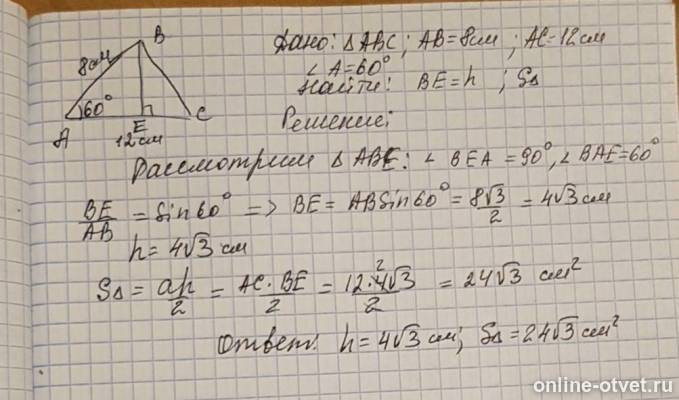 B
8см
60°
A
E
C
12 см
Дано: ΔABC; AB=8см; AC=12см
∠A=60°
Найти: BE=h; SΔ
Решение:
Рассмотрим ΔABE: ∠BEA=90°, ∠BAE=60°
BE/AB = Sin60° => BE = ABSin60° = 8√3/2 = 4√3 см
h=4√3 см
SΔ = ah/2 = AC·BE/2 = 12·4√3/2 = 24√3 см²
Ответ: h=4√3 см; SΔ=24√3 см²
online-otvet.ru